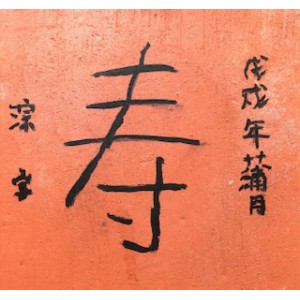 戊戌年蒲月
寿
深字